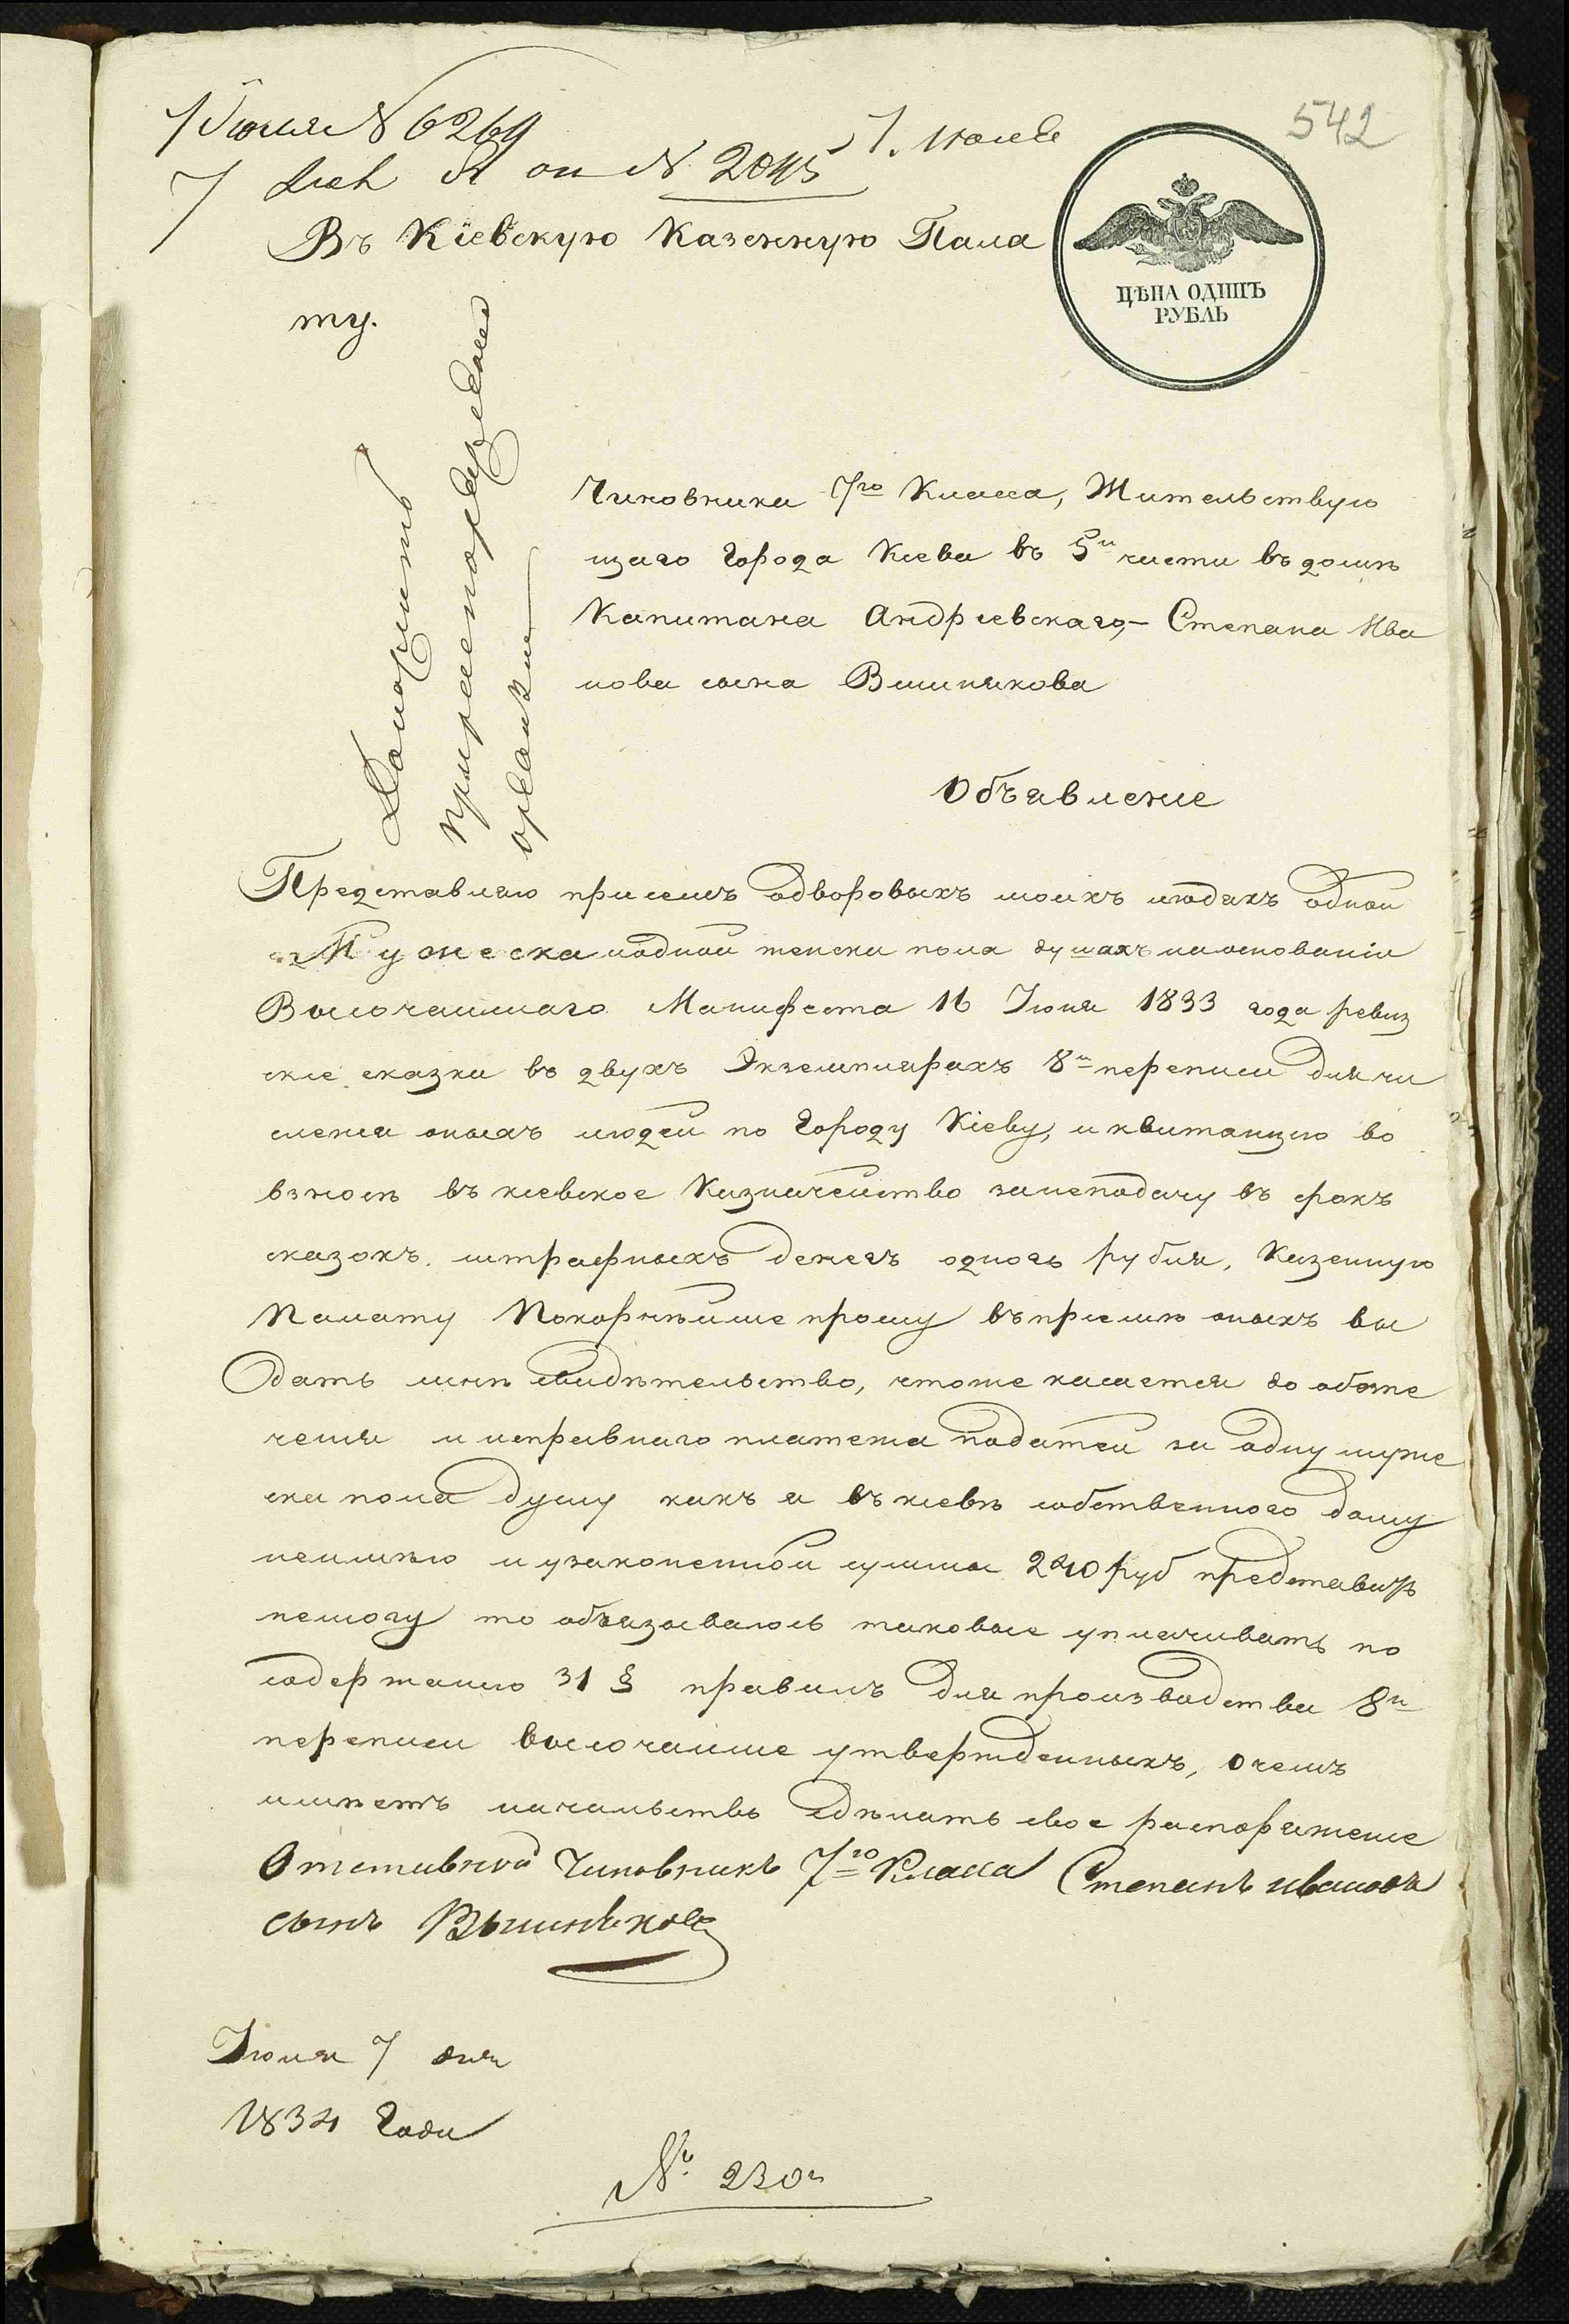 542
Июля № 6269
7. Июля
№ 2045
Въ Кіевскую Казенную Пала
ту.
ЦѢНА ОДИНЪ
РУБЛЬ
Чиновника 7го Класса, Жительствую
щаго Города Кіева въ 5й части въ домѣ
Капитана Андріевскаго,– Степана Ива
нова сына Вишнякова
Объявленіе
Представляю при семъ одворовыхъ моихъ людяхъ одной
Мужеска иодной женска пола душахъ наоснованіи
Высочайшаго Манифеста 16 Іюня 1833 года ревиз
скіе сказки въ двухъ Экземплярахъ 8й переписи для чи
сленія оныхъ людей по Городу Кіеву, и квитанцію во
взносѣ въ кіевское Казначейство занеподачу въ срокъ
сказокъ штрафныхъ денегъ одного рубля, Казенную
Палату Покорнѣйше прошу въпріемѣ оныхъ вы
дать мнѣ свидѣтельство, чтоже касается до обезпе
ченія и исправнаго платежа податей за одну муже
ска пола душу какъ я въ кіевѣ собственного дому
неимѣю и узаконенной суммы 240 руб представить
немогу то обязываюсь таковые уплачивать по
содержанію 31 § правилъ для производства 8й
переписи высочайше утвержденныхъ, о чемъ
имѣетъ начальство сдѣлать свое распоряженіе
Отставной Чиновникъ 7го Класса Степанъ ивановъ
сынъ Вышняковъ
Іюля 7 дня
1834 Года
№ 230